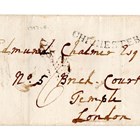 CHICHESTER
Edmund Chalmer Esq
No. 5 Brick Court
Temple
London